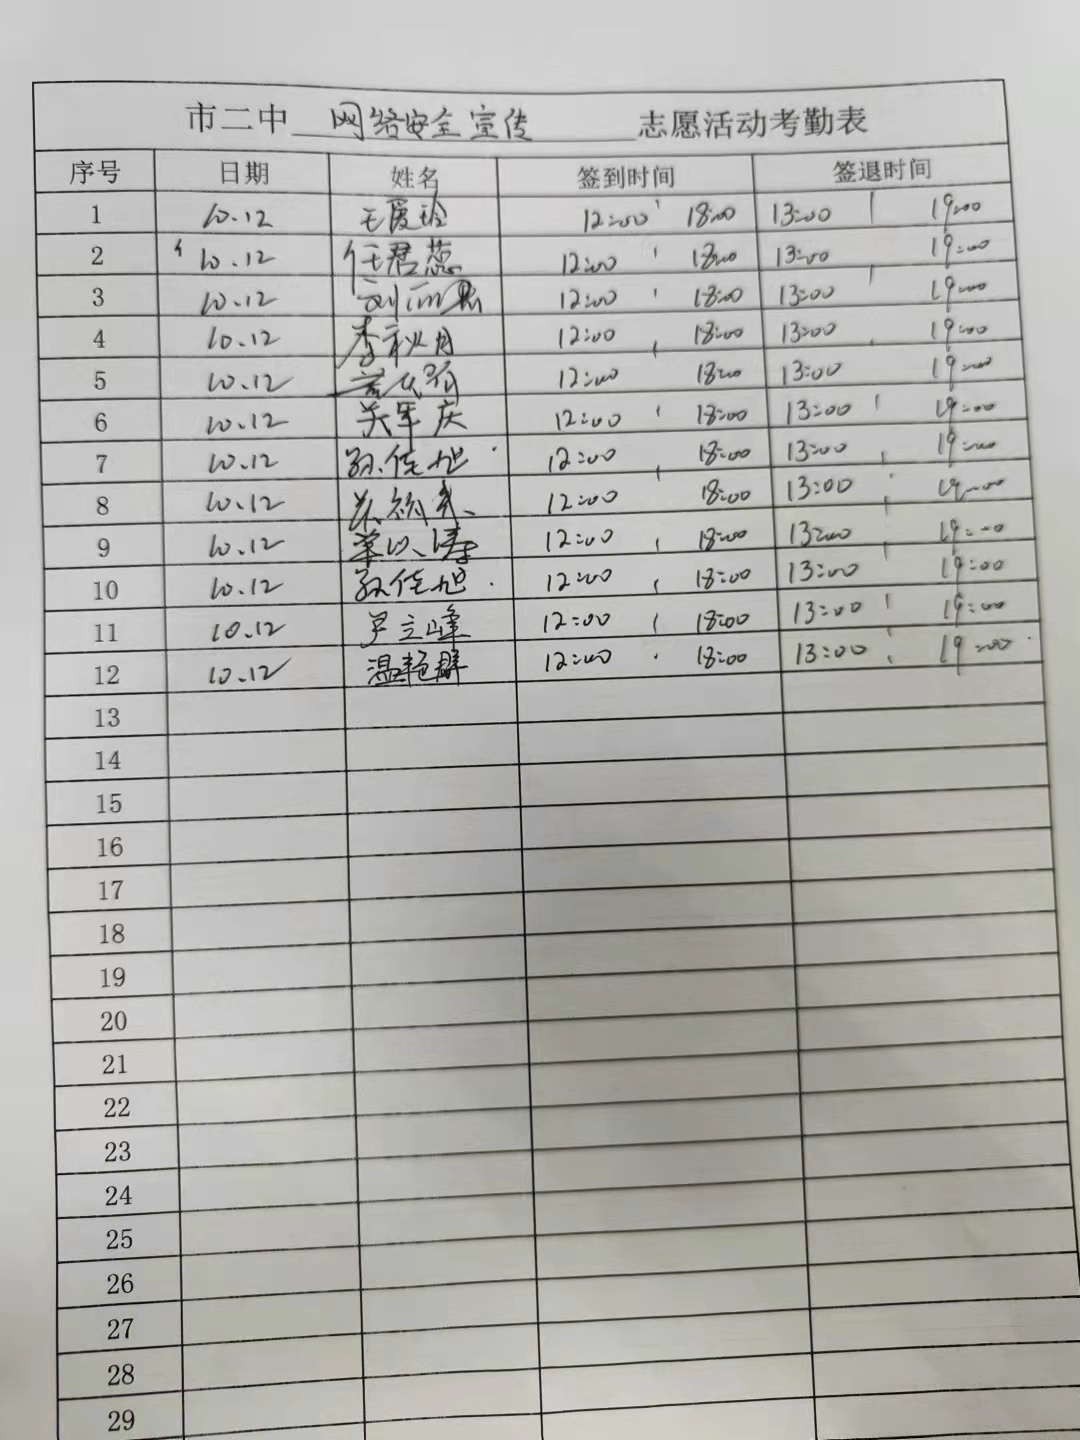 市二中 网络安全宣传 志愿活动考勤表
序号 日期 姓名 签到时间 签退时间
1 10.12 王爱玲 12:00 18:00 13:00 19:00
2 10.12 任君蕊 12:00 18:00 13:00 19:00
3 10.12 刘丽 12:00 18:00 13:00 19:00
4 10.12 李秋月 12:00 18:00 13:00 19:00
5 10.12 12:00 18:00 13:00 19:00
6 10.12 关军庆 12:00 18:00 13:00 19:00
7 10.12 孙佳旭 12:00 18:00 13:00 19:00
8 10.12 12:00 18:00 13:00 19:00
9 10.12 12:00 18:00 13:00 19:00
10 10.12 孙佳旭 12:00 18:00 13:00 19:00
11 10.12 尹立峰 12:00 18:00 13:00 19:00
12 10.12 温艳群 12:00 18:00 13:00 19:00
13
14
15
16
17
18
19
20
21
22
23
24
25
26
27
28
29